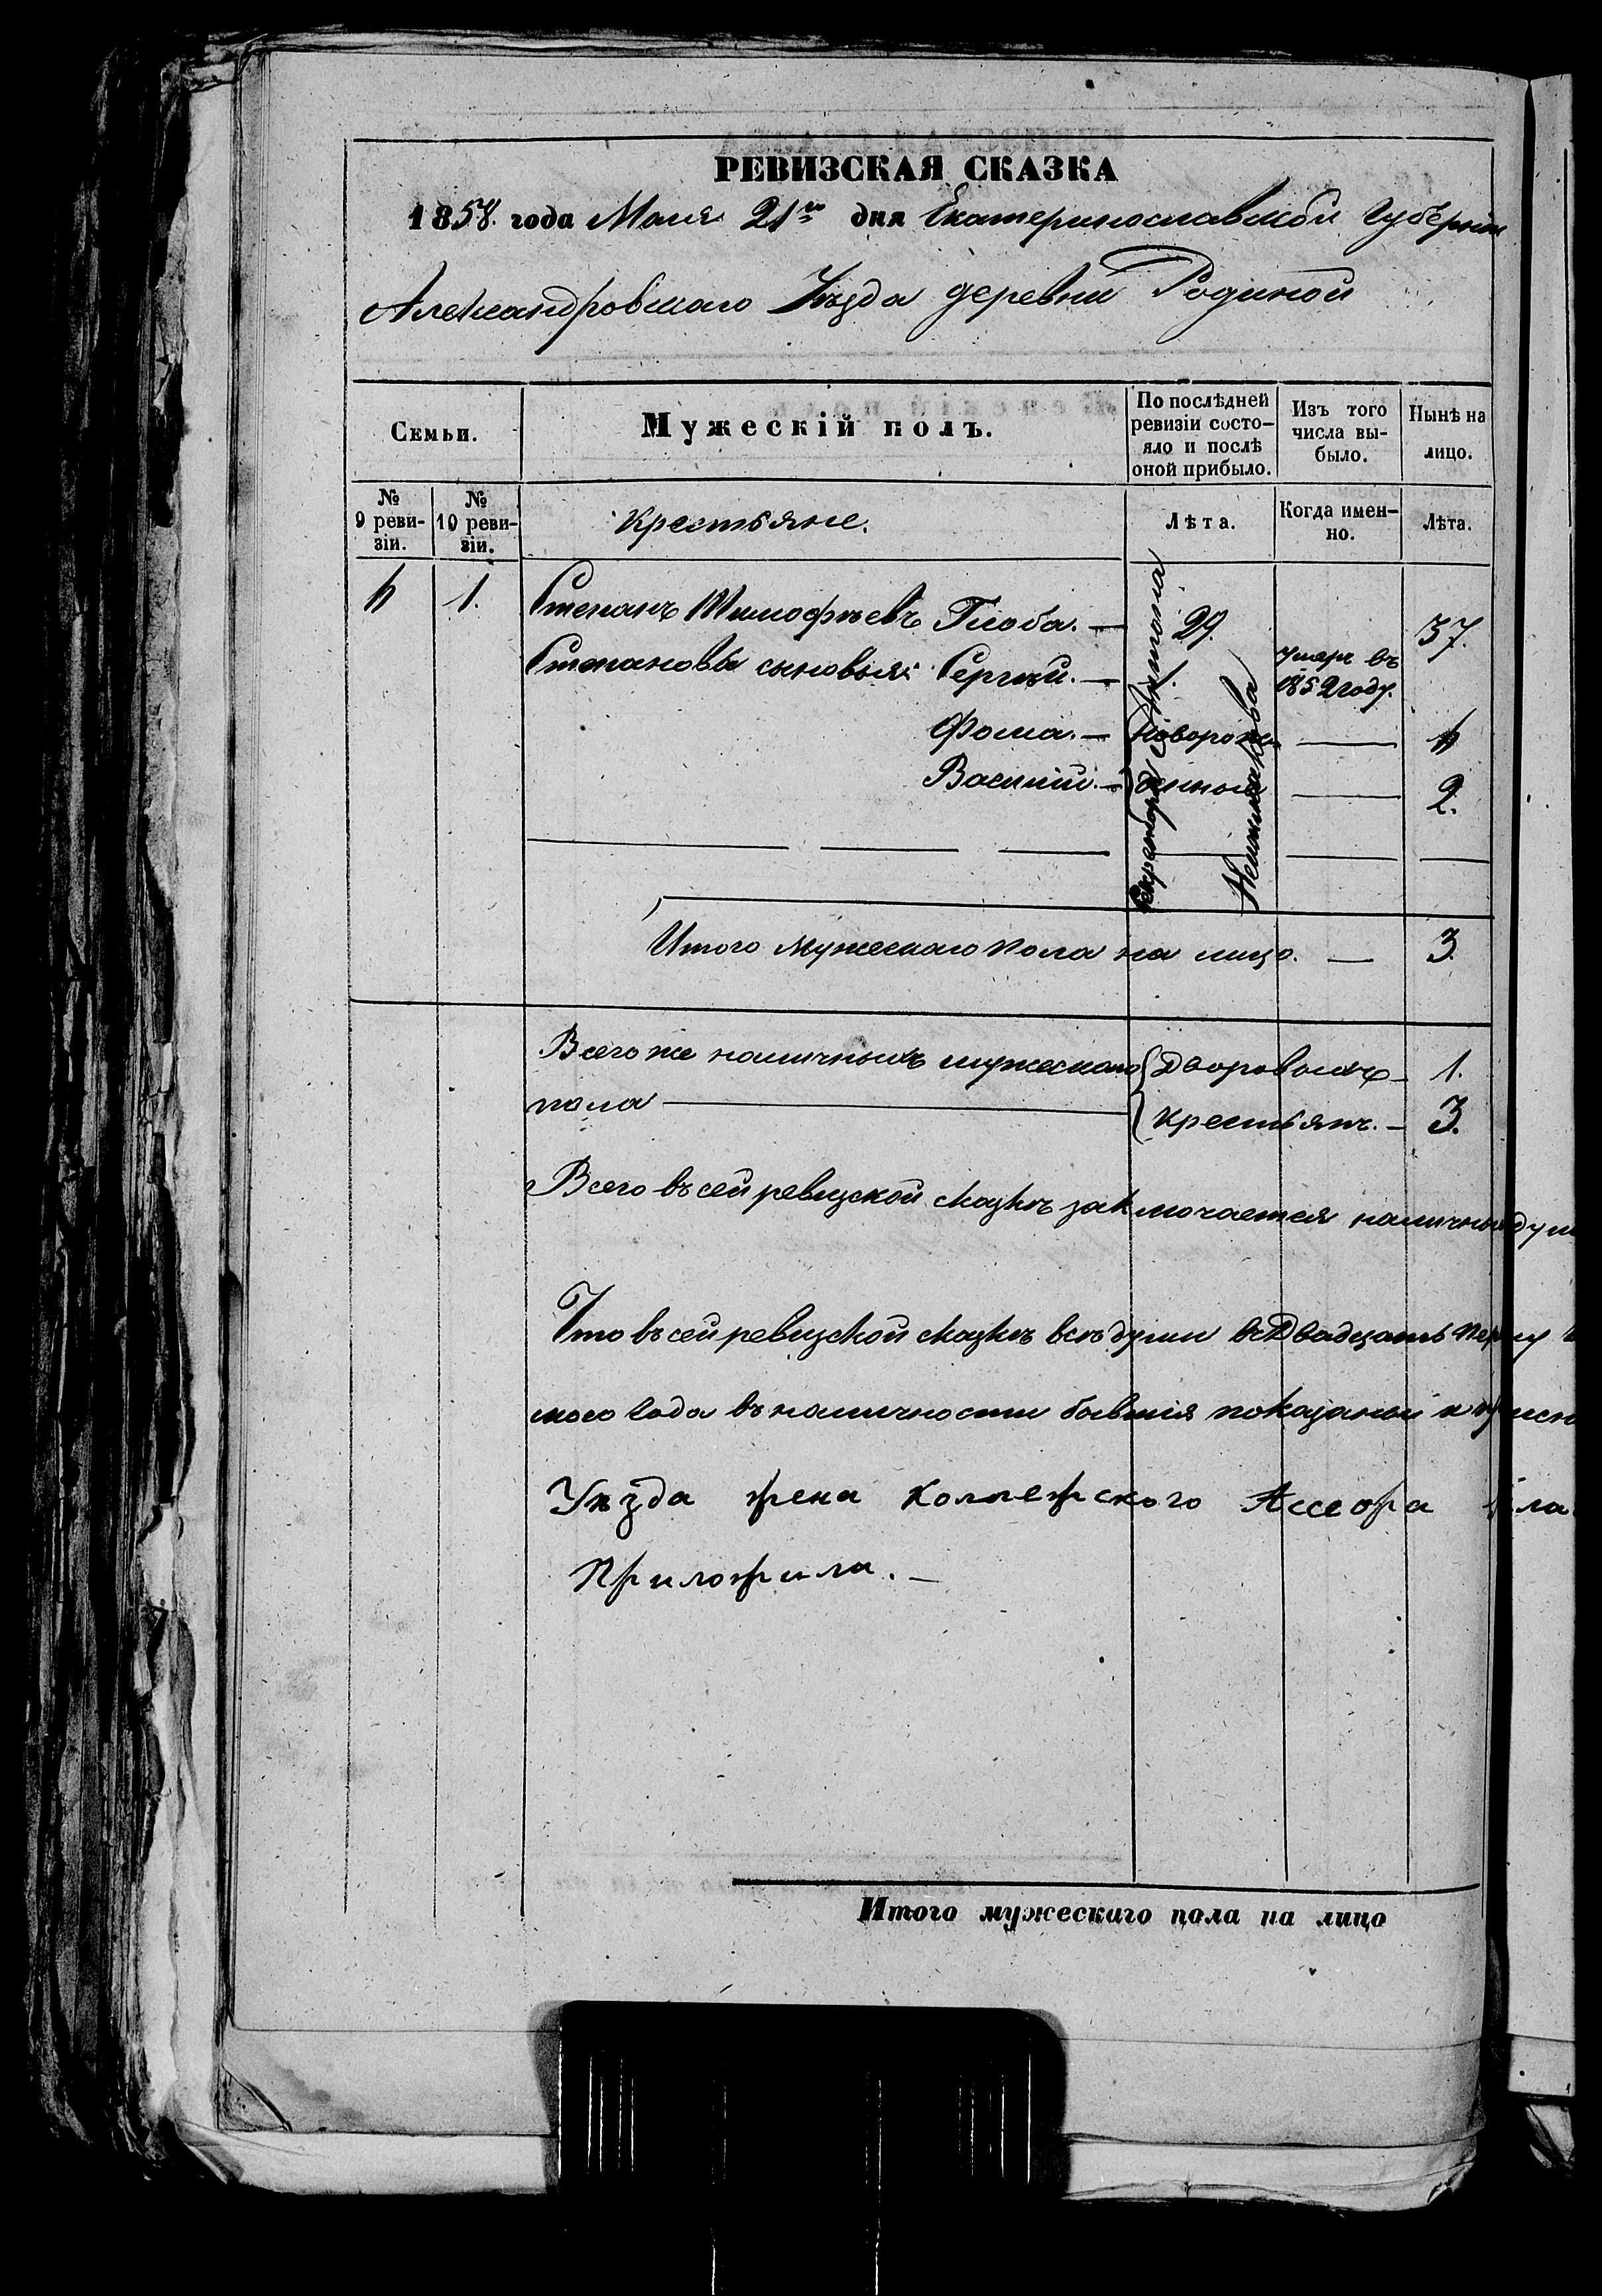 РЕВИЗСКАЯ СКАЗКА
1858. года Маія 21го дня Екатеринославской Губерніи
Александровскаго Уѣзда деревни Родиной
Семьи.
Мужескій полъ.
По послѣдней ревизіи состо-
яло и послѣ
оной прибыло.
Изъ того
числа вы-
было.
Нынѣ на
лицо.
№
9 реви-
зіи.
№
10 реви-
зіи.
Крестьяне.
Лѣта.
Когда имен-
но.
Лѣта.
4 1. Степанъ Тимофѣевъ Глоба. — 29. 37.
Степановы сыновья: Сергѣй. — 1. умеръ въ
1852 году.
Фома. — новорож- — 4
Василій. — денные — 2.
Итого мужескаго пола на лицо. — 3.
Всего же наличныхъ мужескаго { Дворовыхъ — 1.
пола — { Крестьянъ. — 3.
Всего въ сей ревизской сказкѣ заключается наличных душ
Что въ сей ревизской сказкѣ всѣ души въ Двадцать перву
скаго года въ наличности бывшія показаны и
Уѣзда жена Коллежского Ассеора
Приложила. —
Итого мужескаго пола на лицо